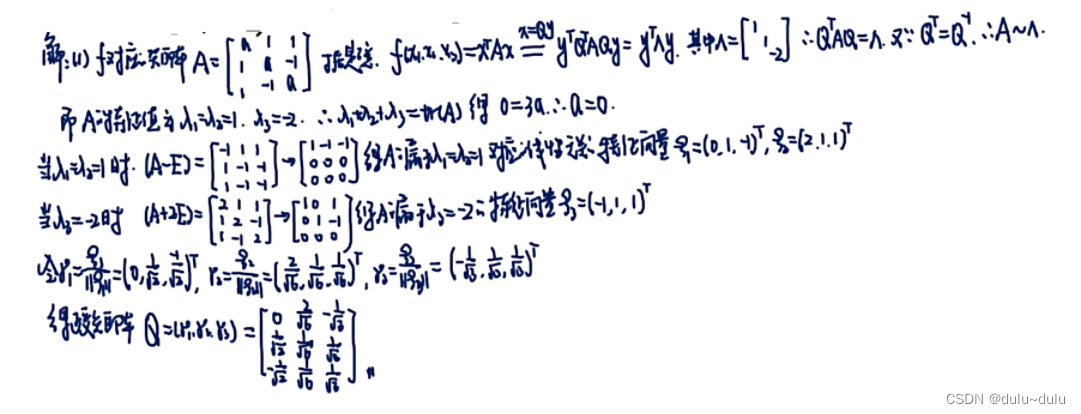 解:(1) f对应矩阵 A=[a 1 1; 1 a -1; 1 -1 a] f(x₁,x₂,x₃)=xᵀAx ═(x=Qy) yᵀQᵀAQy=yᵀΛy. 其中Λ=[1 1 -2] ∴QᵀAQ=Λ. 又∵Qᵀ=Q⁻¹ ∴A~Λ.
即A的特征值为 λ₁=λ₂=1. λ₃=-2. ∴λ₁+λ₂+λ₃=tr(A) 得 0=3a. ∴a=0.
当λ₁=λ₂=1时. (A-E)=[-1 1 1; 1 -1 -1; 1 -1 -1]→[1 -1 -1; 0 0 0; 0 0 0] 得A的属于λ₁=λ₂=1 特征向量 ξ₁=(0,1,-1)ᵀ, ξ₂=(2,1,1)ᵀ
当λ₃=-2时 (A+2E)=[2 1 1; 1 2 -1; 1 -1 2]→[1 0 1; 0 1 -1; 0 0 0] 得A的属于λ₃=-2的特征向量 ξ₃=(-1,1,1)ᵀ
令γ₁=ξ₁/||ξ₁||=(0, 1/√2, -1/√2)ᵀ, γ₂=ξ₂/||ξ₂||=(2/√6, 1/√6, 1/√6)ᵀ, γ₃=ξ₃/||ξ₃||=(-1/√3, 1/√3, 1/√3)ᵀ
得正交矩阵 Q=(γ₁,γ₂,γ₃)=[0 2/√6 -1/√3; 1/√2 1/√6 1/√3; -1/√2 1/√6 1/√3]
CSDN @dulu~dulu